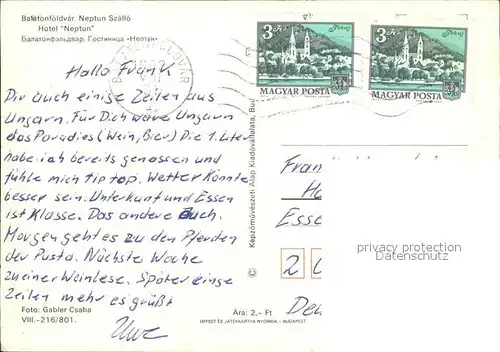 Balatonföldvár. Neptun Szálló
Hotel "Neptun"
Балатонфэльдвар. Гостиница «Нептун»
BALATONFÖLDVÁR
3 Ft Tokaj
MAGYAR POSTA
3 Ft Tokaj
MAGYAR POSTA
Hallo Frank
Dir auch einige Zeilen aus
Ungarn. Für Dich wäre Ungarn
das Paradies (Wein, Bier) Die 1. Liter
habe ich bereits genossen und
fühle mich tip top. Wetter könnte
besser sein. Unterkunft und Essen
ist Klasse. Das andere auch.
Morgen geht es zu den Pferden
der Pusta. Nächste Woche
zu einer Weinlese. Später einge
Zeilen mehr es grüßt
Uwe
Foto: Gabler Csaba
VIII.-216/801.
Ára: 2,- Ft
OFFSET ÉS JÁTÉKKÁRTYA NYOMDA - BUDAPEST
© Képzőművészeti Alap Kiadóvállalata, Bud
Fran
Esse
2
privacy protection
watermark